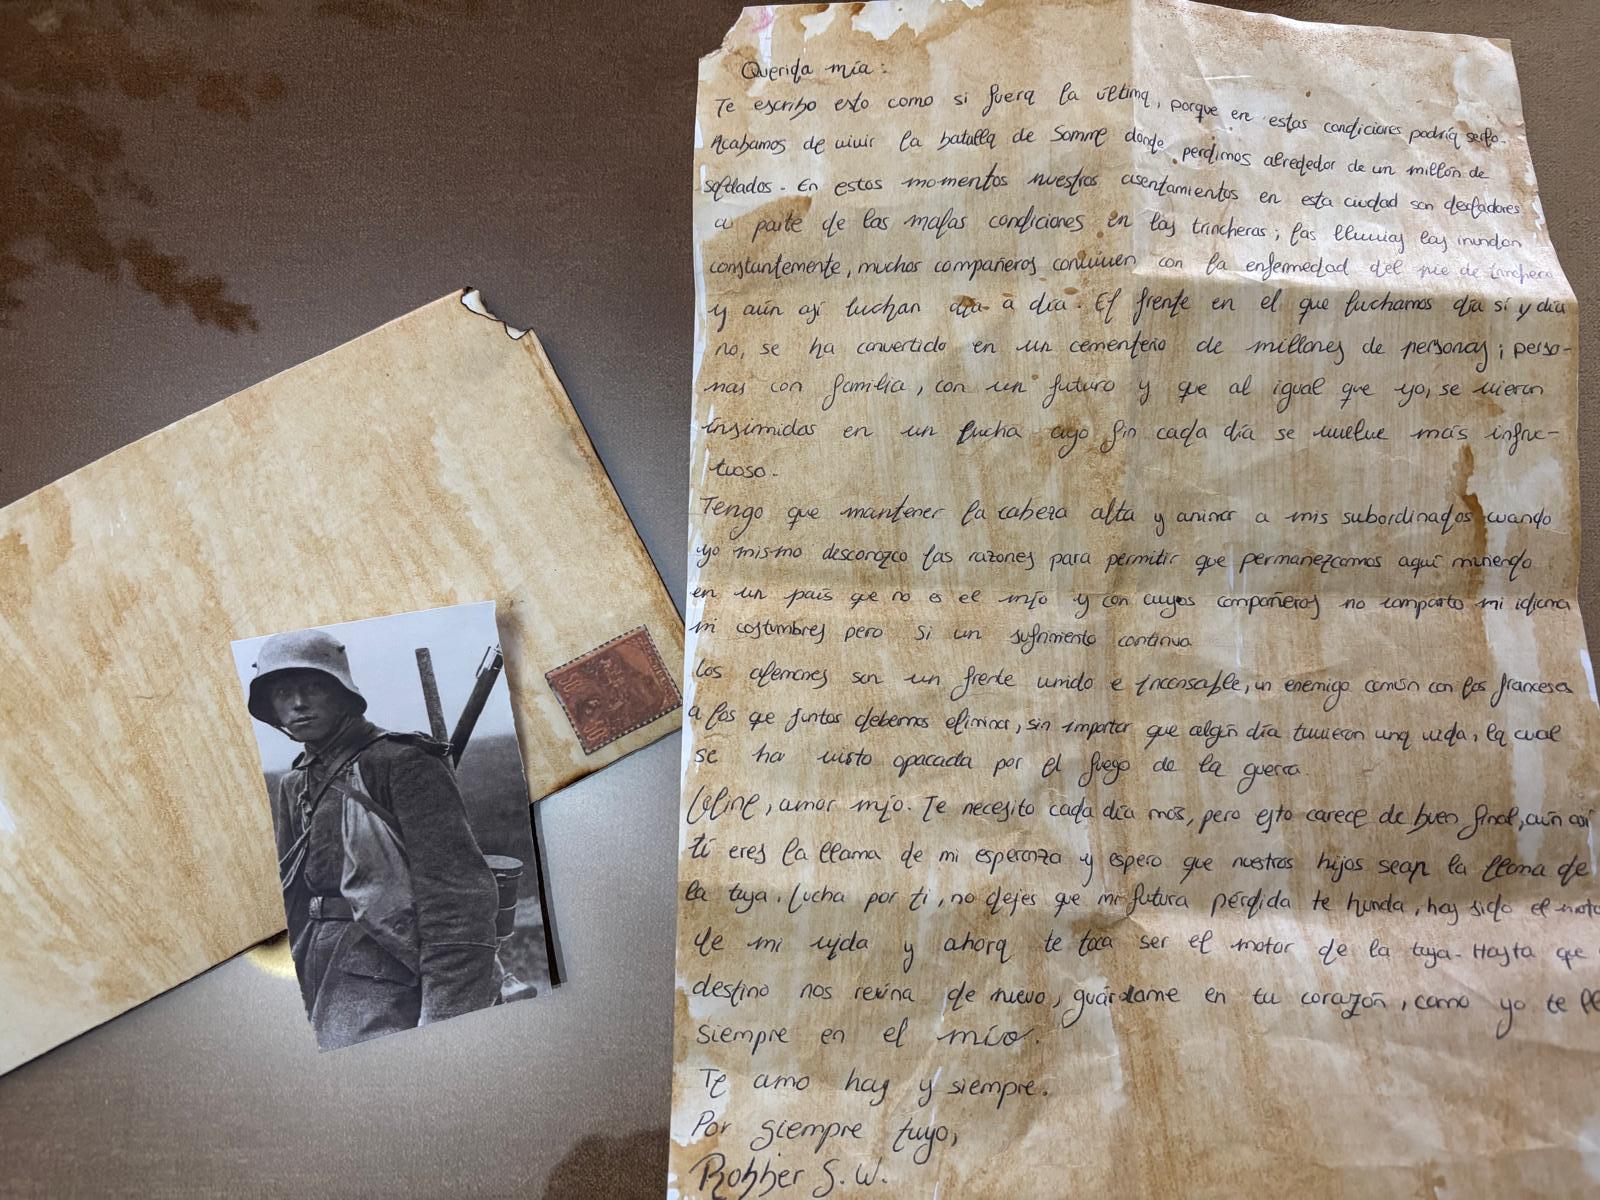 Querida mía:
Te escribo esto como si fuera la última, porque en estas condiciones podría serlo.
Acabamos de vivir la batalla de Somme donde perdimos alrededor de un millón de
soldados. En estos momentos nuestros asentamientos en esta ciudad son desoladores
a parte de las malas condiciones en las trincheras; las lluvias las inundan
constantemente, muchos compañeros conviven con la enfermedad del pie de trinchera
y aún así luchan día a día. El frente en el que luchamos día sí y día
no, se ha convertido en un cementerio de millones de personas; perso-
nas con familia, con un futuro y que al igual que yo, se vieron
en un lucha cuyo fin cada día se vuelve más infruc-
tuoso.
Tengo que mantener la cabeza alta y animar a mis subordinados cuando
yo mismo desconozco las razones para permitir que permanezcamos aquí muriendo
en un país que no es el mío y con cuyos compañeros no comparto mi idioma
ni costumbres pero si un sufrimiento continuo
Los alemanes son un frente unido e incansable, un enemigo común con los franceses
a los que juntos debemos eliminar, sin importar que algún día tuvieron una vida, la cual
se ha visto opacada por el fuego de la guerra.
Celine, amor mío. Te necesito cada día más, pero esto carece de buen final, aún así
tú eres la llama de mi esperanza y espero que nuestros hijos sean la llama de
la tuya. Lucha por ti, no dejes que mi futura pérdida te hunda, has sido el
de mi vida y ahora te toca ser el motor de la tuya. Hasta que
destino nos reúna de nuevo, guárdame en tu corazón, como yo te
siempre en el mío.
Te amo hoy y siempre.
Por siempre tuyo,
S.W.